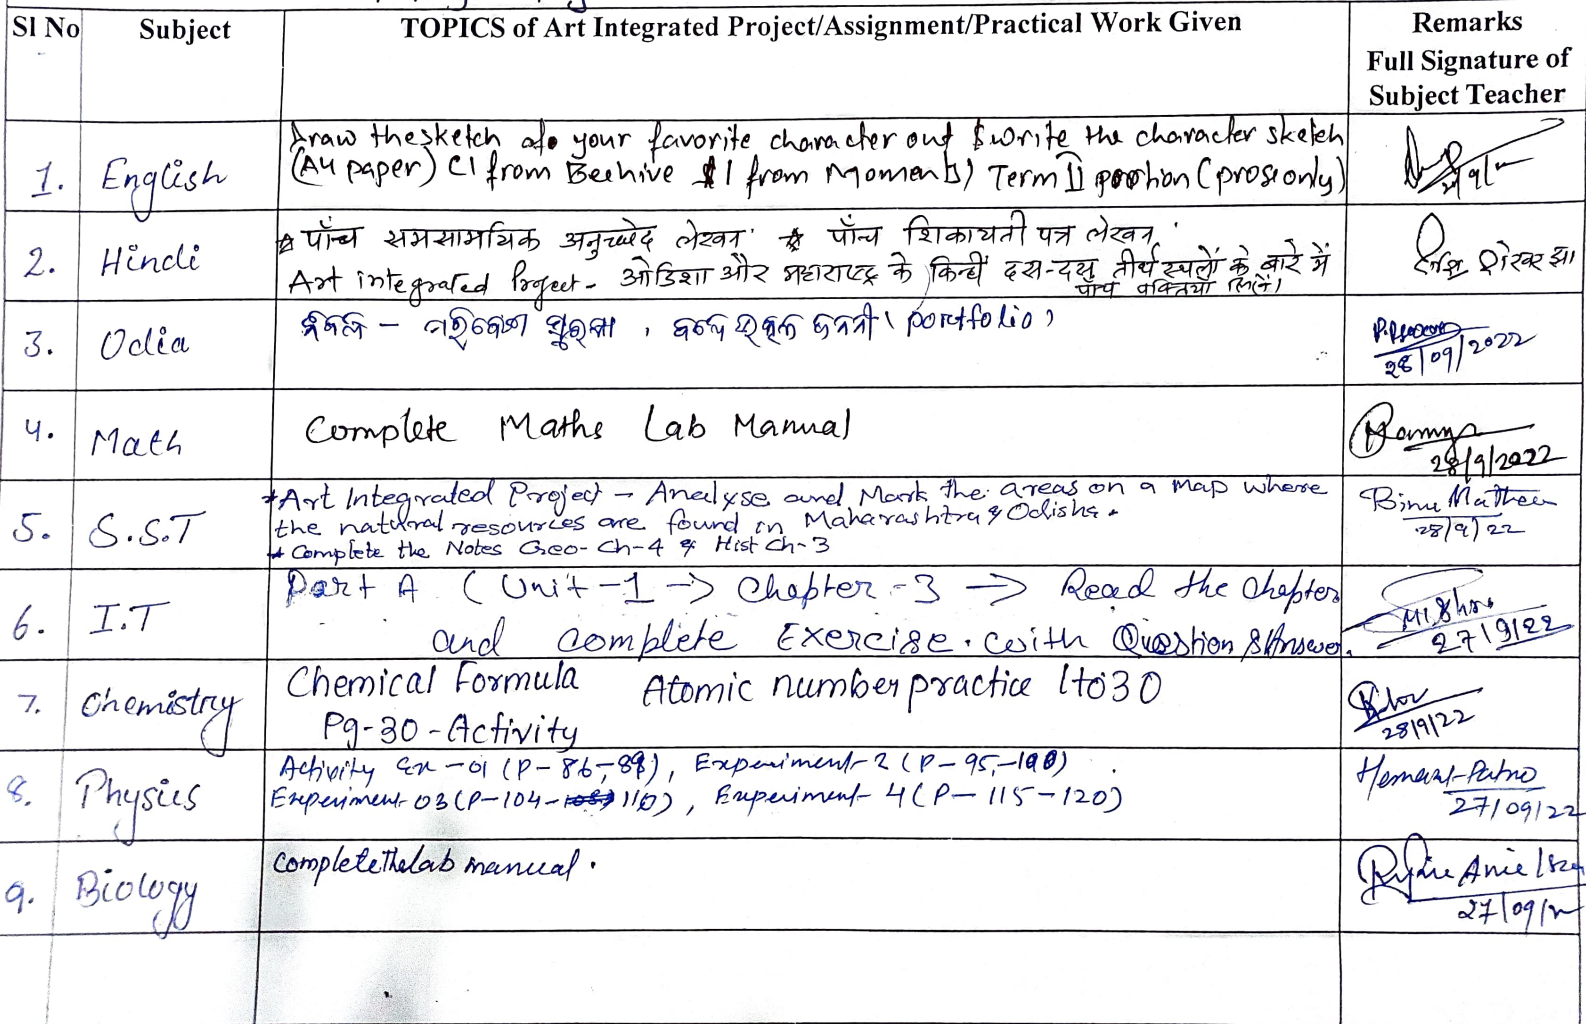 Sl No Subject TOPICS of Art Integrated Project/Assignment/Practical Work Given Remarks
Full Signature of
Subject Teacher
1. English Draw the sketch of your favorite character out & write the character sketch
(A4 paper) (1 from Beehive & 1 from Moments) Term II portion (prose only)
2. Hindi ☆ पाँच समसामयिक अनुच्छेद लेखन ☆ पाँच शिकायती पत्र लेखन,
Art integrated Project - ओडिशा और महाराष्ट्र के किन्हीं दस-दस तीर्थ स्थलों के बारे में
पांच पंक्तियाँ लिखें।
शेखर झा
3. Odia ନିବନ୍ଧ - ପରିବେଶ ସୁରକ୍ଷା, ଜନନୀ (portfolio)
28/09/2022
4. Math Complete Maths Lab Manual
28/9/2022
5. S.S.T *Art Integrated Project - Analyse and Mark the areas on a map where
the natural resources are found in Maharashtra & Odisha.
* Complete the Notes Geo- Ch-4 & Hist Ch-3
Binu Mathew
28/9/22
6. I.T Part A (Unit-1 → Chapter-3 → Read the Chapter
and complete Exercise. with Question & Answer.
27/9/22
7. Chemistry Chemical Formula Atomic number practice 1 to 30
Pg-30-Activity
28/9/22
8. Physics Activity Ex-01 (P-86-89), Experiment-2 (P-95-100)
Experiment-03 (P-104-110), Experiment-4 (P-115-120)
Hemant Patro
27/09/22
9. Biology complete the lab manual.
27/09/22